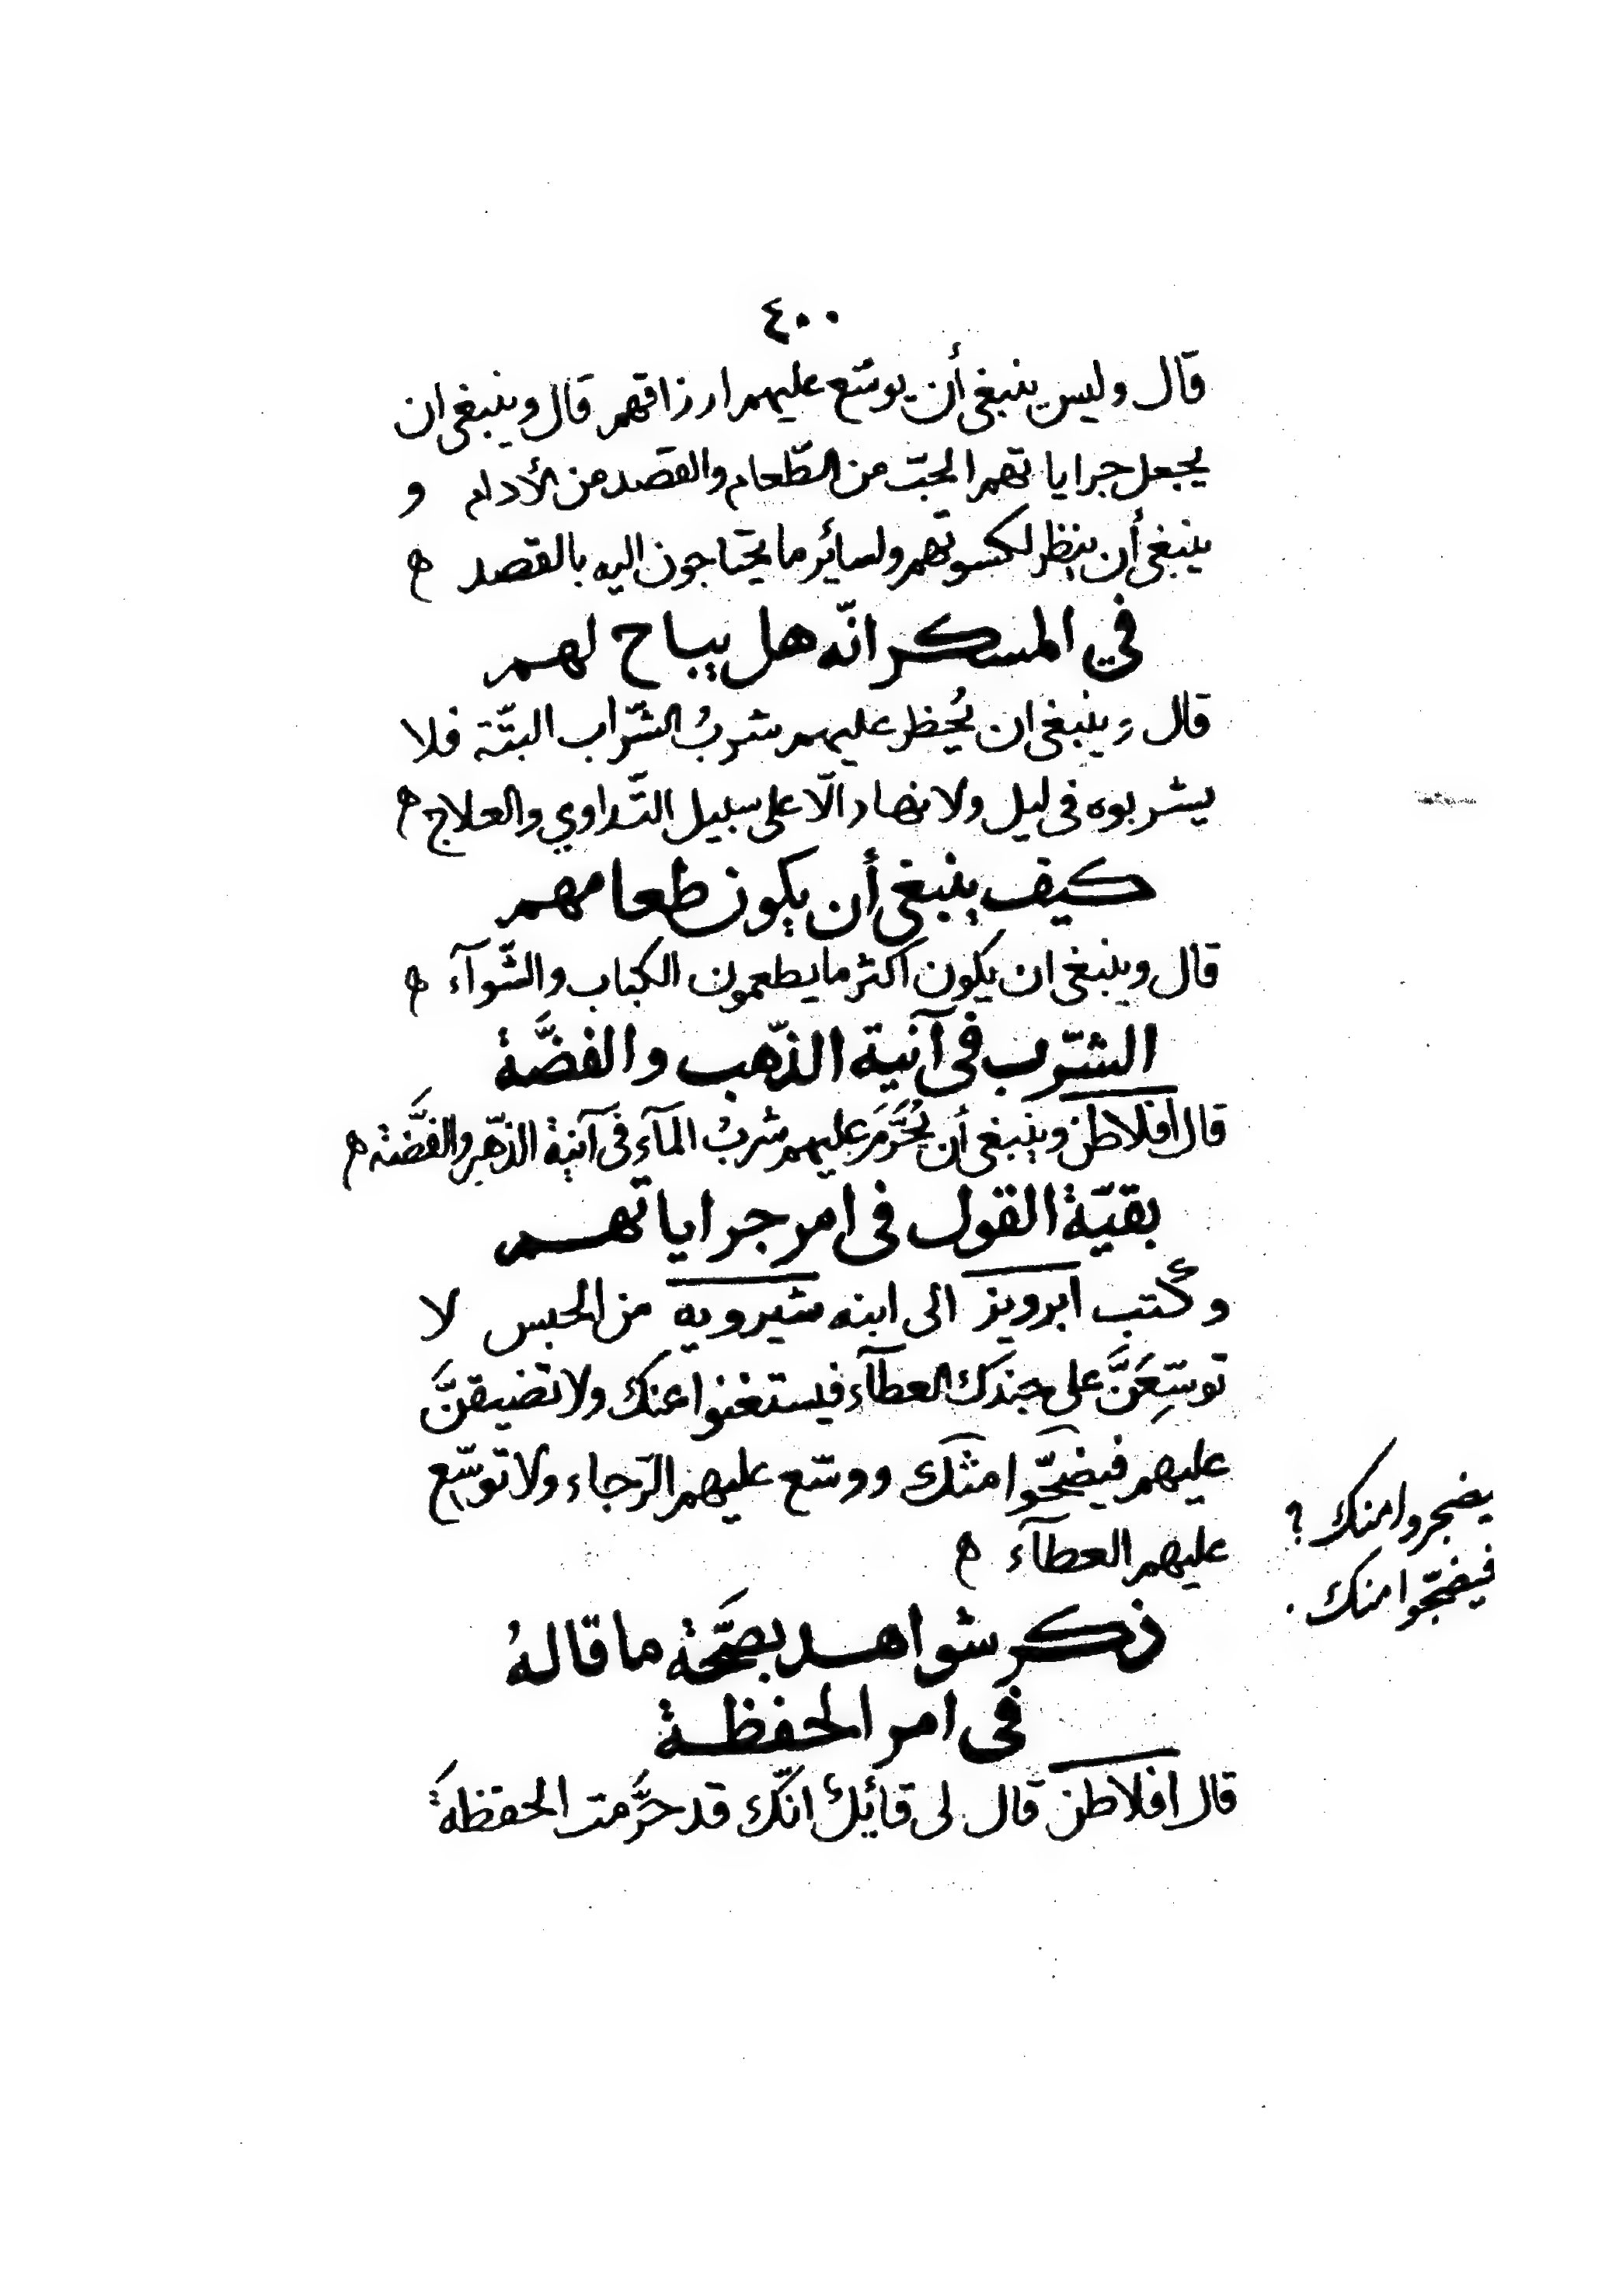 ٤٠٠
قال وليس ينبغى أن يوسّع عليهم ارزاقهم قال وينبغى ان
يجعل جراياتهم الجبّ من الطّعام والقصد من الأدام و
ينبغى أن ينظر لكسوتهم ولسائر ما يحتاجون اليه بالقصد ه
في المسكر انّه هل يباح لهم
قال وينبغى ان يُحظر عليهم شربُ الشّراب البتّة فلا
يشربوه فى ليل ولا نهار الّا على سبيل التّداوي والعلاج ه
كيف ينبغي أن يكون طعامهم
قال وينبغى ان يكون اكثر ما يطعمون الكباب والشّوآء ه
الشّرب فى آنية الذّهب والفضَّة
قال افلاطن وينبغى أن يُحَرَّمَ عليهم شربُ المآء فى آنية الذّهب والفضَّة ه
بقيّة القول فى امر جراياتهم
وكتب ابرويز الى ابنه شيرويه من الحبس لا
توسّعَنَّ على جندك العطآء فيستغنوا عنك ولا تضيقنَّ
عليهم فيضحّوا مثك ووسّع عليهم الرّجاء ولا توسّع
يضجروا منك ؟
عليهم العطآء ه
فيضجّوا منك .
ذكر شواهد بصَّحة ما قالهُ
فى امر الحفظة
قال افلاطن قال لى قائلٌ انّك قد حرَّمت الحفظةَ